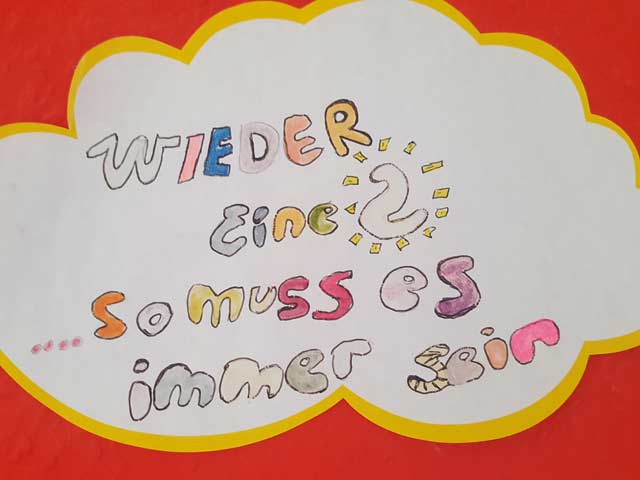 WIEDER
Eine 2
....so muss es
immer sein